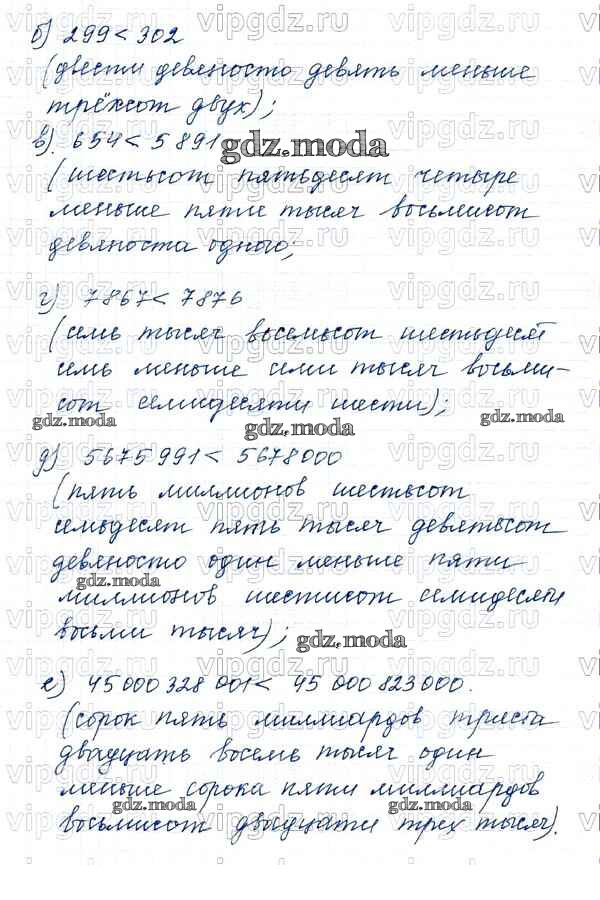 б) 299 < 302
(двести девяносто девять меньше
трёхсот двух);
в). 654 < 5891
(шестьсот пятьдесят четыре
меньше пяти тысяч восьмисот
девяноста одного;
г) 7867 < 7876
(семь тысяч восемьсот шестьдесят
семь меньше семи тысяч восьми-
сот семидесяти шести);
д) 5675991 < 5678000
(пять миллионов шестьсот
семьдесят пять тысяч девятьсот
девяносто один меньше пяти
миллионов шестисот семидесяти
восьми тысяч);
е) 45 000 328 001 < 45 000 823 000.
(сорок пять миллиардов триста
двадцать восемь тысяч один
меньше сорока пяти миллиардов
восьмисот двадцати трех тысяч).
gdz.moda
vipgdz.ru